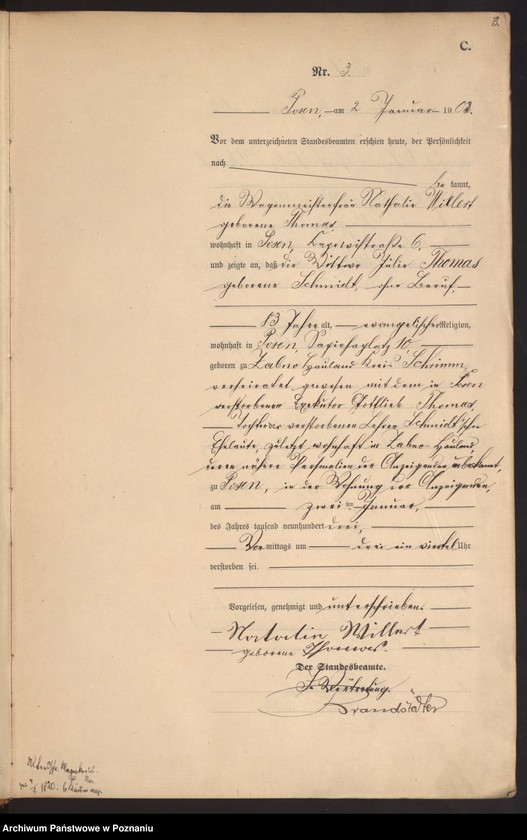 3.
C.
Nr. 3.
Posen, am 2 Januar 1903.
Vor dem unterzeichneten Standesbeamten erschien heute, der Persönlichkeit
nach
be kannt,
die Wagenmeisterfrau Nathalie Willert
geborene Thomas
wohnhaft in Posen, 6,
und zeigte an, daß die Wittwe Julie Thomas
geborene Schmidt, ohne Beruf,
83 Jahre alt, evangelischer Religion,
wohnhaft in Posen, Sapiehaplatz 10
geboren zu Zabno Hauland Kreis Schrimm
verheirathet gewesen mit dem in Posen
verstorbenen Exekutor Gottlieb Thomas,
Tochter der verstorbenen Lehrer Schmidt'schen
Eheleute, zuletzt wohnhaft in Zabno Hauland
deren nähere Personalien der Anzeigenden unbekannt,
zu Posen, in der Wohnung der Anzeigenden,
am zwei ten Januar,
des Jahres tausend neunhundert drei,
Vor mittags um drei ein viertel Uhr
verstorben sei.
Vorgelesen, genehmigt und unterschrieben.
Natalie Willert
geborene Thomas.
Der Standesbeamte.
In Vertretung.
Brandstädter
1820.
Archiwum Państwowe w Poznaniu